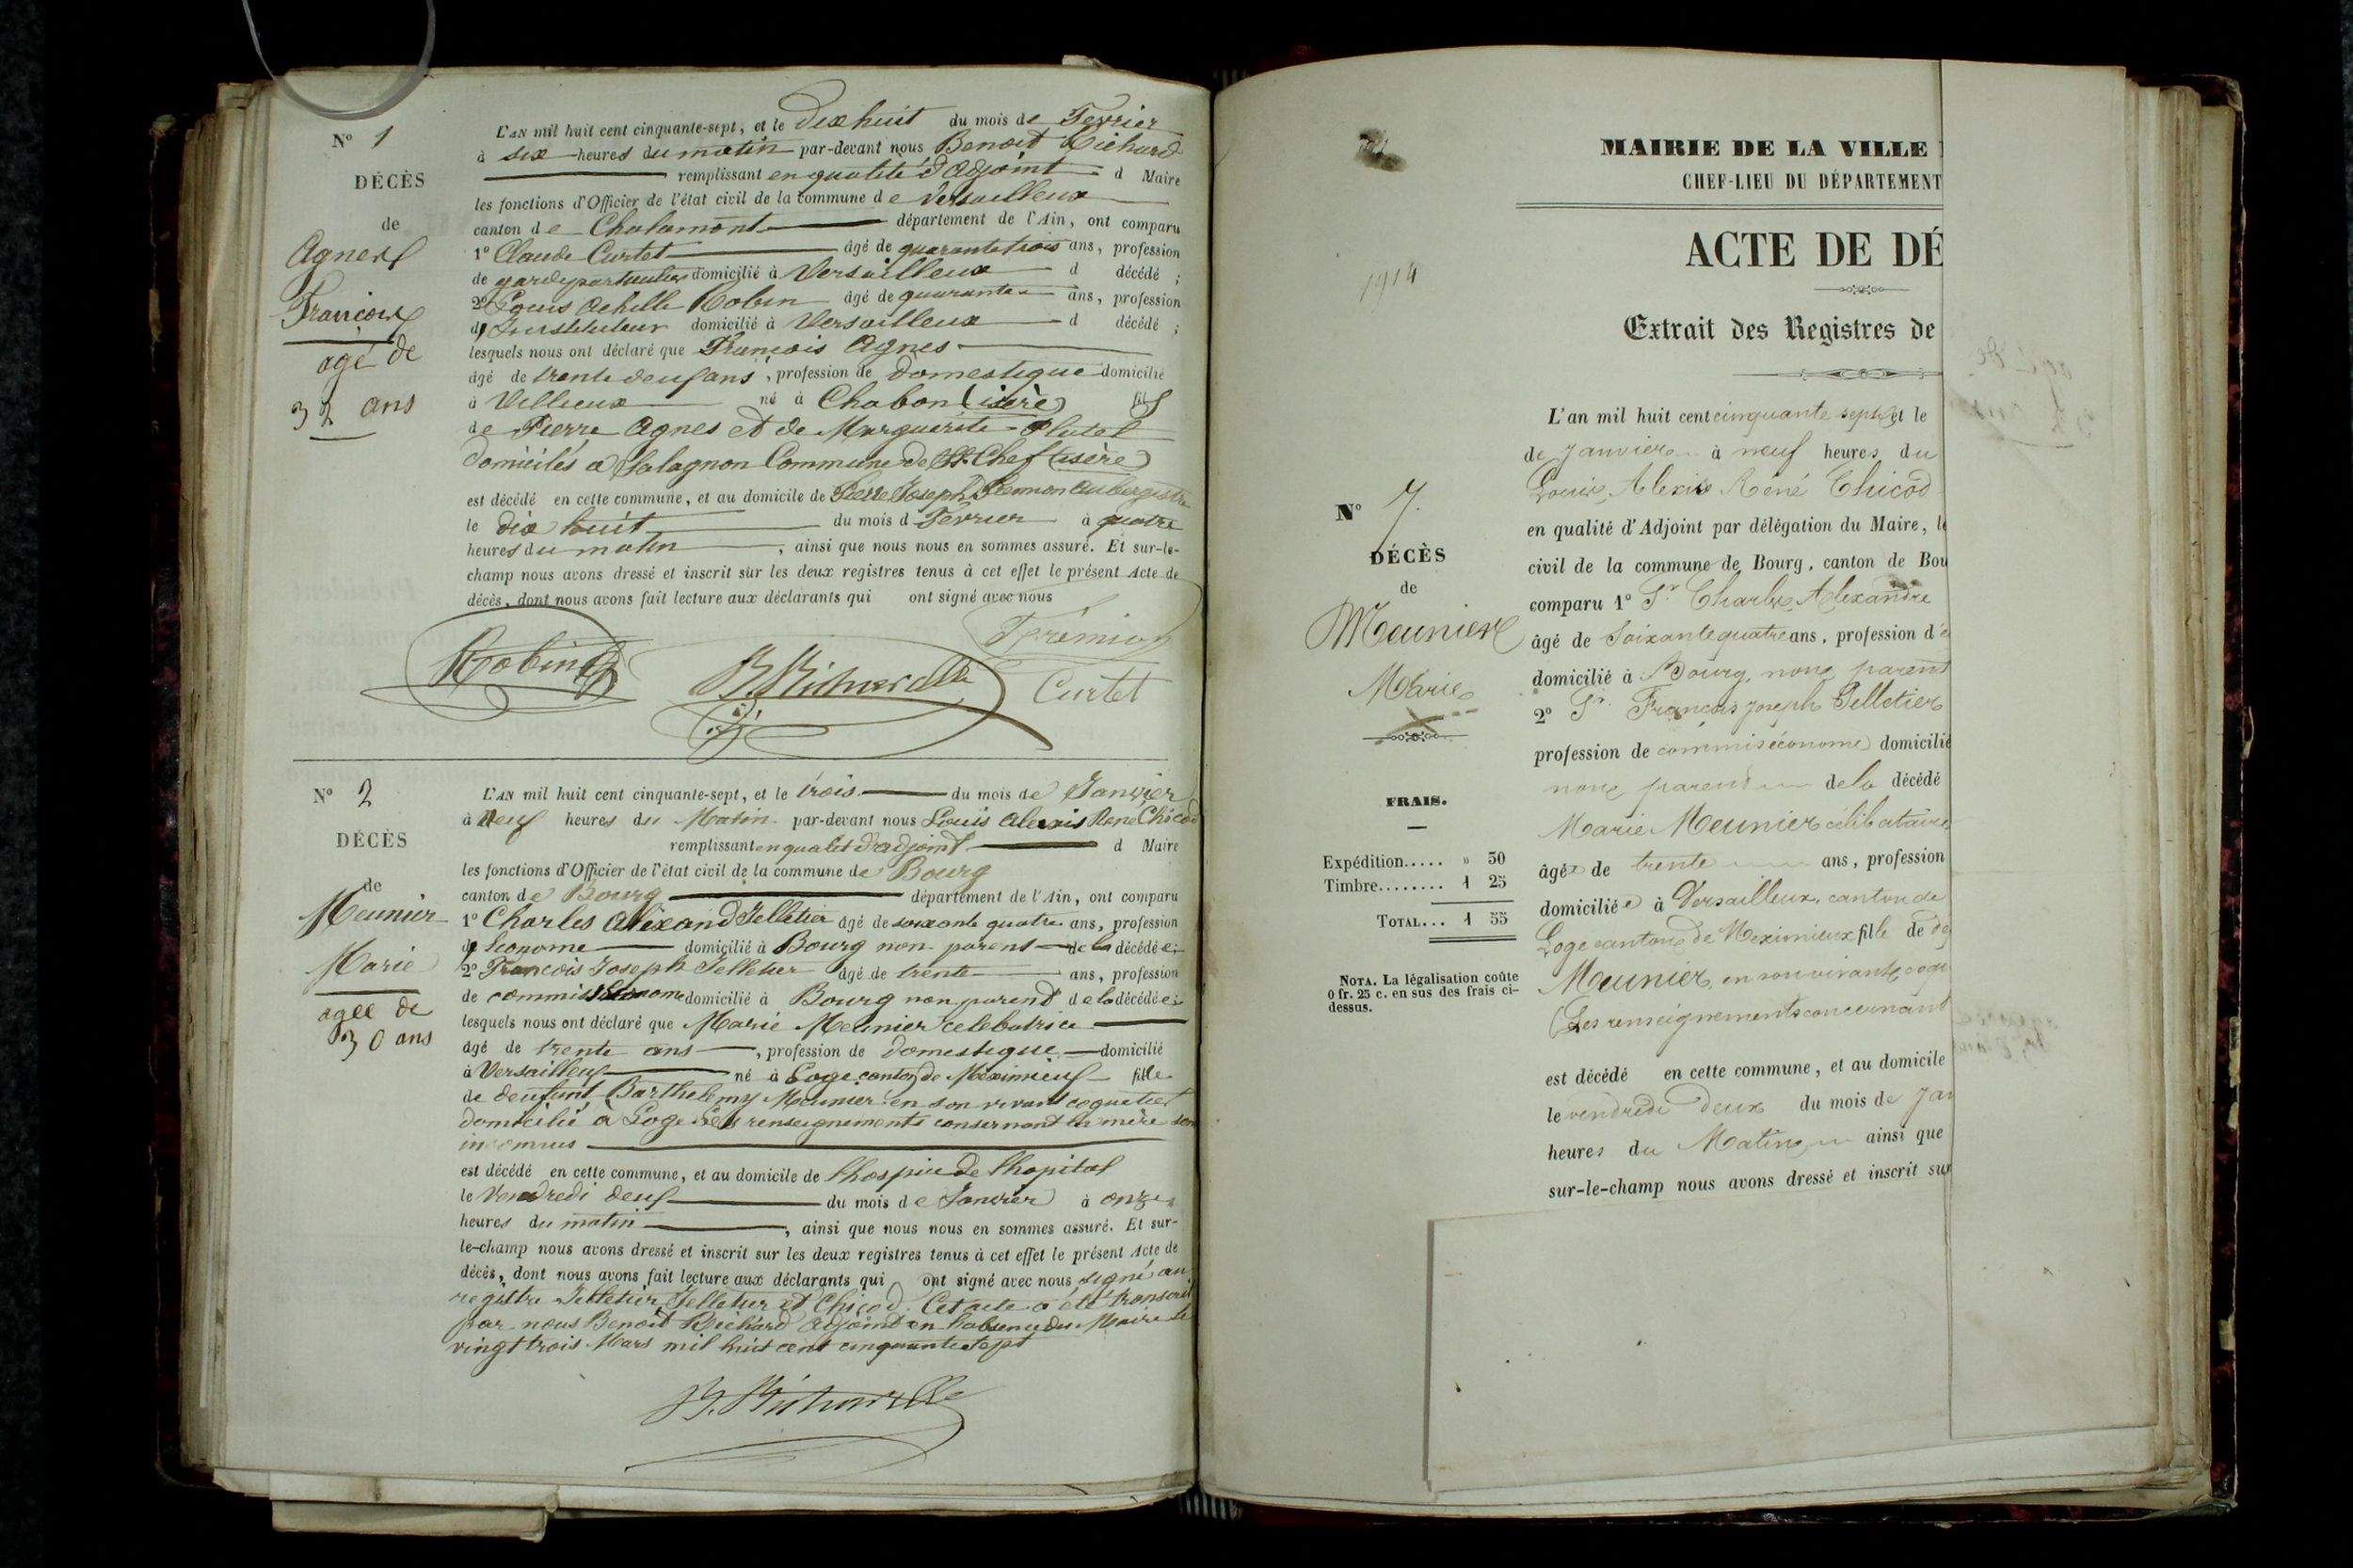 N° 1
DÉCÈS
de
Agnes
François
agé de
32 ans
L'AN mil huit cent cinquante-sept, et le dix huit du mois de Fevrier
à six heures du matin par-devant nous Benoit Richard
remplissant en qualité d'adjoint d Maire
les fonctions d'Officier de l'état civil de la commune de Versailleux
canton de Chalamont département de l'Ain, ont comparu
1° Claude Curtet âgé de quarante trois ans, profession
de garde particulier domicilié à Versailleux d décédé ;
2° Louis Achille Robin âgé de quarante ans, profession
d'Instituteur domicilié à Versailleux d décédé ;
lesquels nous ont déclaré que François Agnes
âgé de trente deux ans, profession de domestique domicilié
à Villieux né à Chabon (isère) fils
de Pierre Agnes et de Marguerite Plutel
domiciliés a Salagnon Commune de St Chef (isère)
est décédé en cette commune, et au domicile de Pierre Joseph aubergiste
le dix huit du mois d Fevrier à quatre
heures du matin, ainsi que nous nous en sommes assuré. Et sur-le-
champ nous avons dressé et inscrit sur les deux registres tenus à cet effet le présent Acte de
décès, dont nous avons fait lecture aux déclarants qui ont signé avec nous
Robin
B. Richard
Curtet
N° 2
DÉCÈS
de
Meunier
Marie
agée de
30 ans
L'AN mil huit cent cinquante-sept, et le trois du mois de Janvier
à Neuf heures du Matin par-devant nous Louis Alexis René Chicod
remplissant en qualité d'adjoint d Maire
les fonctions d'Officier de l'état civil de la commune de Bourg
canton de Bourg département de l'Ain, ont comparu
1° Charles Alexand Pelletier âgé de soixante quatre ans, profession
d'économe domicilié à Bourg non parent de la décédée ;
2° François Joseph Pelletier âgé de trente ans, profession
de commis économe domicilié à Bourg non parent de la décédée ;
lesquels nous ont déclaré que Marie Meunier celebatrice
âgé de trente ans, profession de domestique domicilié
à Versailleux né à Loge canton de Méximieux fille
de deufunt Barthelemy Meunier en son vivant coquetier
domicilié à Loge Les renseignements consernant la mère son
inconnus
est décédé en cette commune, et au domicile de l'hospice de l'hopital
le Vendredi deux du mois de Janvier à onze
heures du matin, ainsi que nous nous en sommes assuré. Et sur-
le-champ nous avons dressé et inscrit sur les deux registres tenus à cet effet le présent Acte de
décès, dont nous avons fait lecture aux déclarants qui ont signé avec nous signé au
registre Pelletier Pelletier et Chicod. Cet acte a été transcrit
par nous Benoit Richard adjoint en l'absence du Maire le
vingt trois Mars mil huit cent cinquante sept
B. Richard
1914
MAIRIE DE LA VILLE
CHEF-LIEU DU DÉPARTEMENT
ACTE DE DÉ
Extrait des Registres de
N° 7.
DÉCÈS
de
Meunier
Marie
FRAIS.
Expédition..... » 30
Timbre........ 1 25
TOTAL... 1 55
NOTA. La légalisation coûte
0 fr. 25 c. en sus des frais ci-
dessus.
L'an mil huit cent cinquante sept et le
de Janvier à neuf heures du
Louis Alexis René Chicod
en qualité d'Adjoint par délégation du Maire, le
civil de la commune de Bourg, canton de Bou
comparu 1° Sr. Charles Alexandre
âgé de soixante quatre ans, profession d'é
domicilié à Bourg, non parent
2° Sr. François Joseph Pelletier
profession de commis économe domicilié
non parent de la décédé
Marie Meunier célibataire
âgée de trente ans, profession
domiciliée à Versailleux, canton de
Loge canton de Meximieux fille de dé
Meunier, en son vivant coqu
(Les renseignements concernant
est décédé en cette commune, et au domicile
le vendredi deux du mois de Jan
heures du Matin ainsi que
sur-le-champ nous avons dressé et inscrit sur